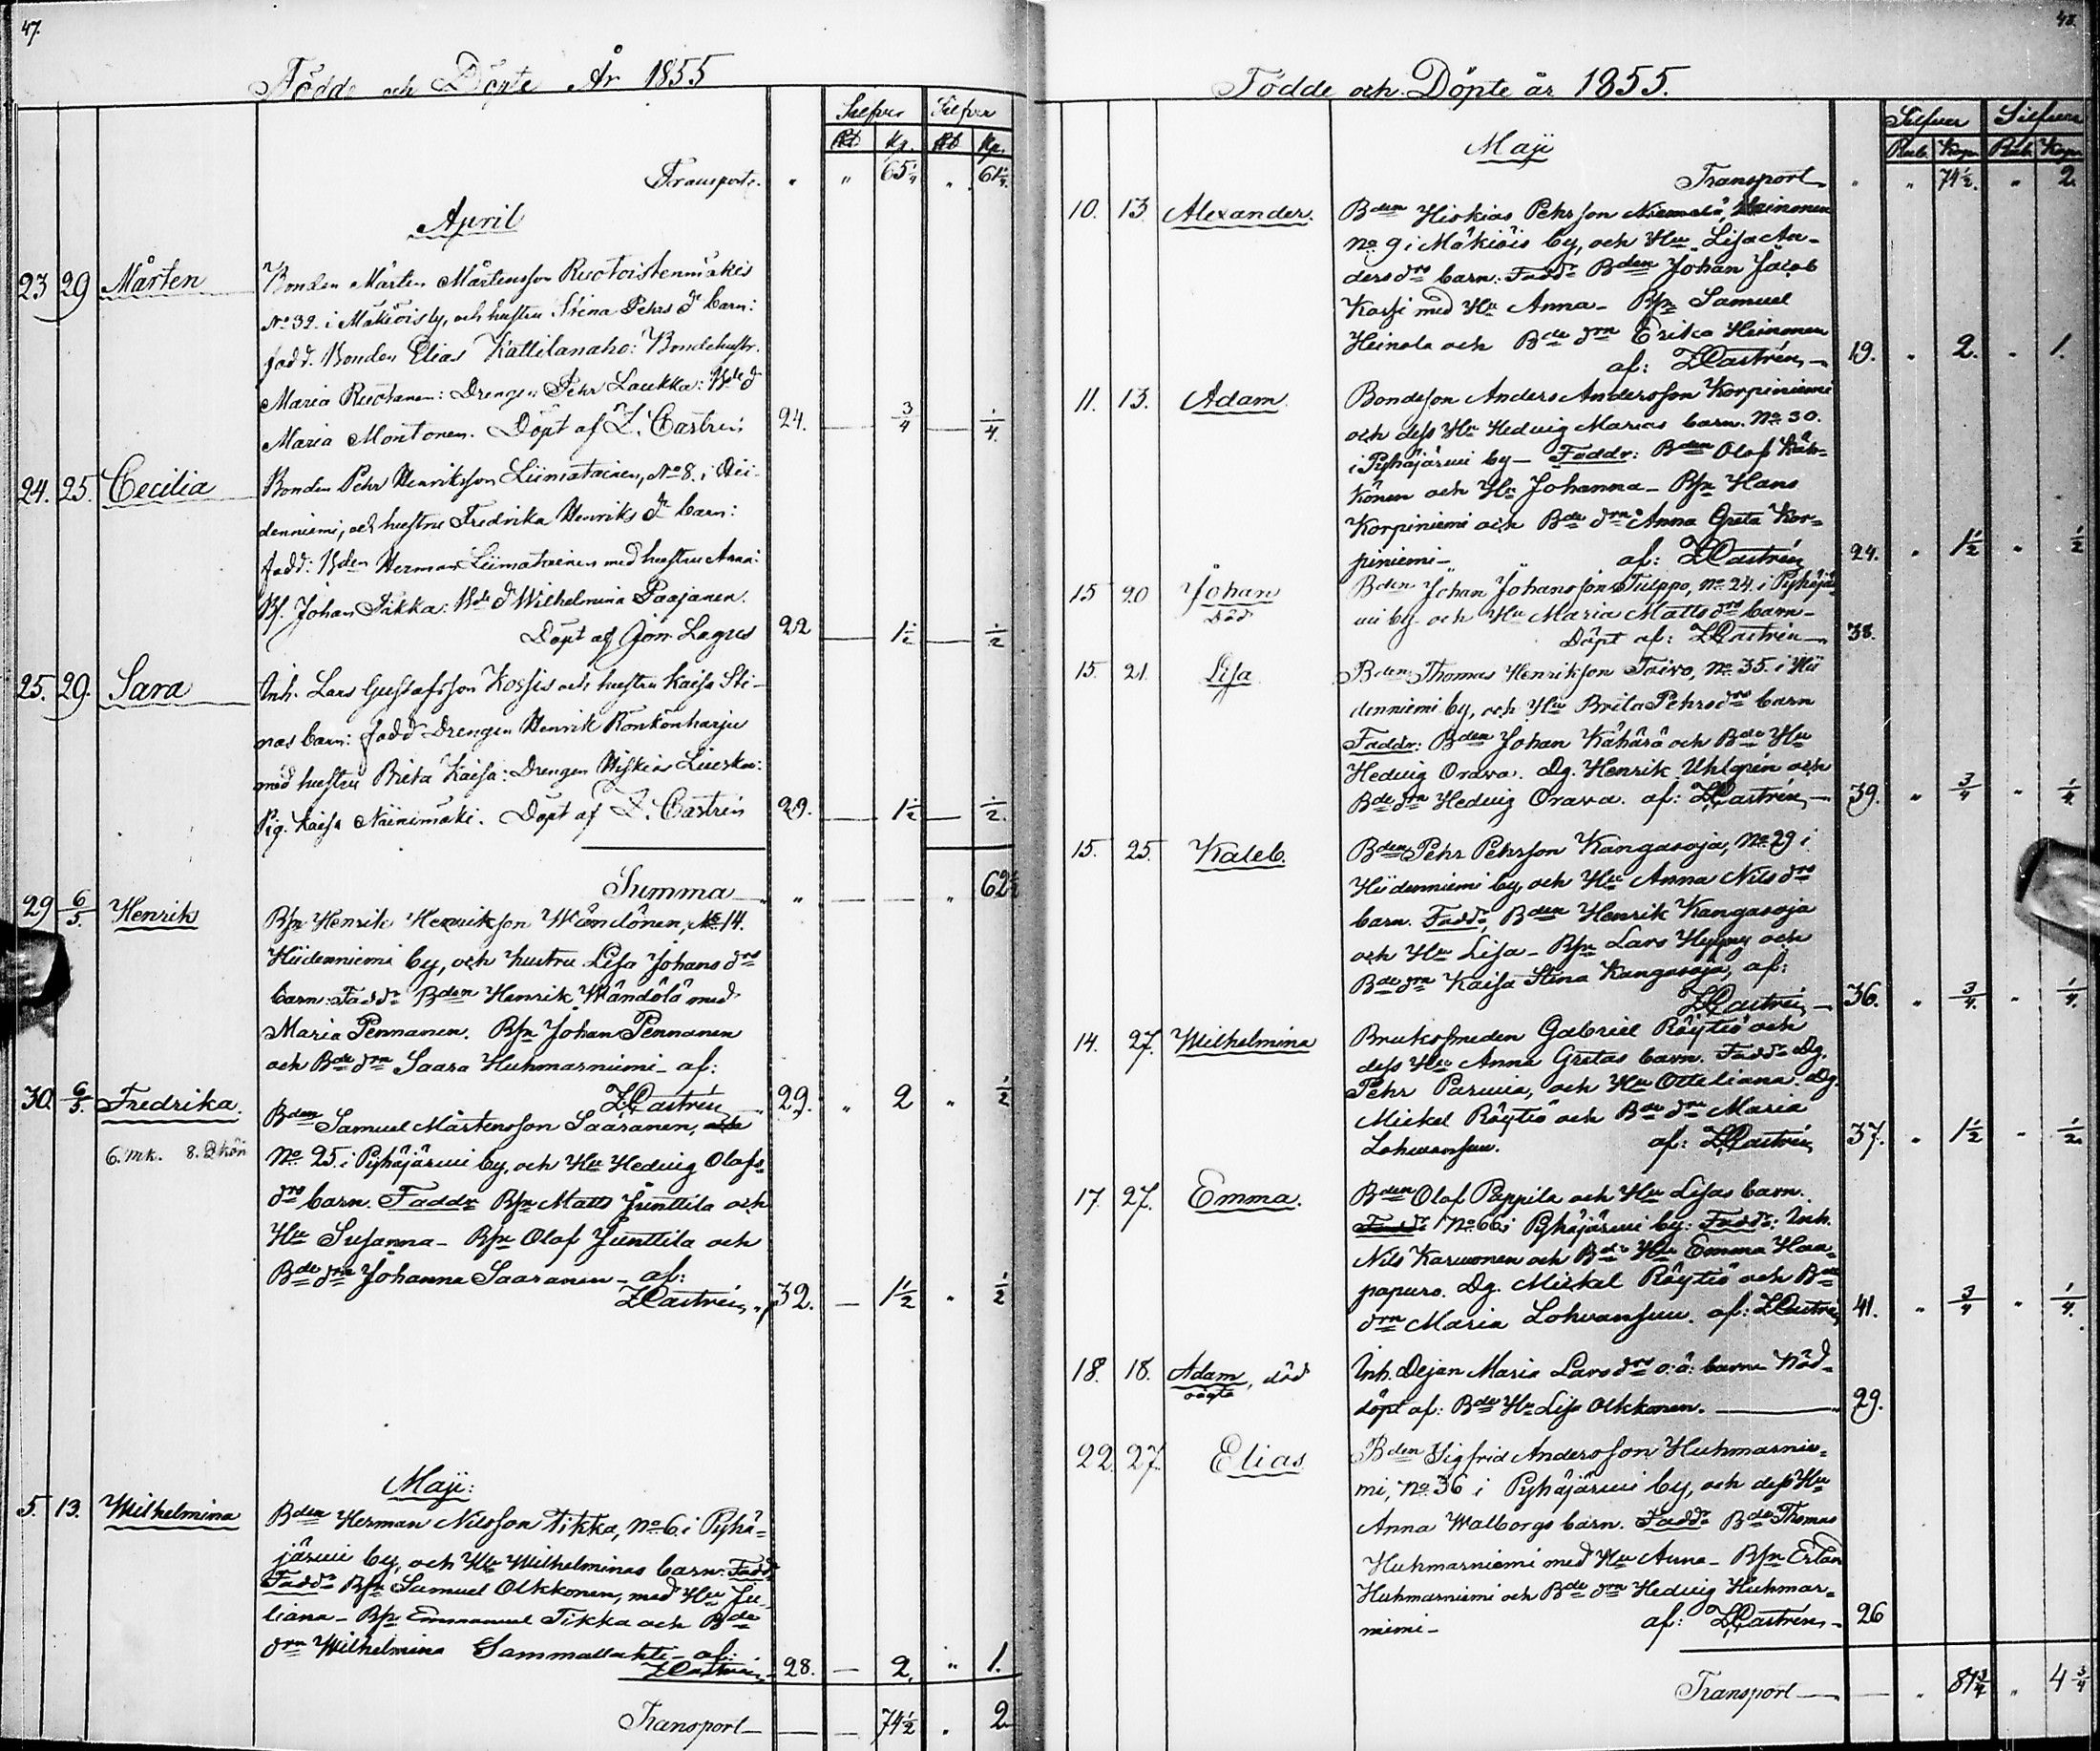 47.
Födde och Döpte År 1855
Silfver Silfver
Rb Kp. Rb Kp.
Transport. " " 65 1/4 " 61 1/4
April
23 29 Mårten Bonden Mårten Mårtensson Ruotoistenmäkis
No 32. i Mäkiöis by, och hustru Stina Pehrs dr barn:
fadd. Bonden Elias Kattilanaho: Bondehustr.
Maria Ruotanen: Drengen Pehr Laukka: Bde d
Maria Montonen. Döpt af Z. Castrén 24. — 3/4 — 1/4.
24. 25. Cecilia Bonden Pehr Henriksson Liimatainen, No 8. i Hii-
denniemi, och hustru Fredrika Henriks dr barn:
fadd: Bden Herman Liimatainen med hustru Anna:
Bs. Johan Tikka: Bde d Wilhelmina Paajanen.
Döpt af Jon. Lagus 22 — 1 1/2 — 1/2
25. 29. Sara Inh. Lars Gustafsson Kossis och hustru Kaisa Sti-
nas barn: fadd Drengen Henrik Ronkonharju
med hustru Brita Kaisa: Drengen Hiskias Lieska:
Pig. Kaisa Niinimäki. Döpt af Z. Castrén 29. — 1 1/2 — 1/2.
Summa " — — " 62 1/2
29 6/5. Henrik Bsn Henrik Henriksson Wändönen, No 14.
Hiidenniemi by, och hustru Lisa Johans drs
barn: Faddr Bden Henrik Wändölä med
Maria Pennanen. Bsn Johan Pennanen
och Bde drn Saara Huhmarniemi - af:
ZCastrén 29. " 2 " 1/2
30. 6/5. Fredrika. Bden Samuel Mårtensson Saaranen,
6. mk. No 25. i Pyhäjärvi by, och Hu Hedvig Olofs
drs barn. Faddr Bsn Matts Junttila och
Hu Susanna - Bsn Olof Junttila och
Bde drn Johanna Saaranen - af:
ZCastrén 32. — 1 1/2 " 1/2
Maji:
5. 13. Wilhelmina Bden Herman Nilsson Tikka, No 6. i Pyhä-
järvi by, och Hu Wilhelminas barn. Fadd
Faddr Bsn Samuel Olkkonen, med Hu Ju-
liana - Bsn Emmanuel Tikka och Bde
drn Wilhelmina Sammallahti - af:
ZCastrén 28. — 2. " 1.
Transport — — — 74 1/2 " 2
48.
Födde och Döpte år 1855.
Silfver Silfver
Rub. Kop. Rub. Kop.
Maji
Transport " " 74 1/2. " 2
10. 13. Alexander. Bden Hiskias Pehrsson Niemelä, Heinonen
No 9 i Mäkiöis by, och Hu Lisa An-
ders drs barn: Faddr Bden Johan Jacob
Kossi med Hu Anna - Bsn Samuel
Heinola och Bde drn Erika Heinonen
af: ZCastrén, — 19. " 2. " 1.
11. 13. Adam. Bondeson Anders Andersson Korpiniemi
och dess Hu Hedvig Marias barn. No 30.
i Pyhäjärvi by - Faddr: Bden Olof Käh-
könen och Hu Johanna - Bsn Hans
Korpiniemi och Bde drn Anna Greta Kor-
piniemi - af: ZCastrén 24. " 1 1/2 " 1/2
15 20 Johan Bden Johan Johansson Tulppo, No 24. i Pyhäjär
död vi by och Hu Maria Matts drs barn -
Döpt af: ZCastrén — 38.
15. 21. Lisa Bden Thomas Henriksson Taivo, No 35. i Hii
denniemi by, och Hu Brita Pehrs drs barn
Faddr: Bden Johan Kähärä och Bde Hu
Hedvig Orava. Dg. Henrik Uhlgrén och
Bde drn Hedvig Orava. af: ZCastrén, — 39. " 3/4 " 1/4.
15. 25. Kaleb. Bden Pehr Pehrsson Kangasoja, No 29 i
Hiidenniemi by, och Hu Anna Nils drs
barn. Faddr, Bden Henrik Kangasoja
och Hu Lisa - Bsn Lars Hyyny och
Bde drn Kaisa Stina Kangasoja, af:
ZCastrén, — 36. " 3/4. " 1/4.
14. 27. Wilhelmina Brukssmeden Gabriel Röytiö och
dess Hu Anna Gretas barn. Faddr Dg.
Pehr Parvia, och Hu Otteliana. Dg.
Mickel Röytiö och Bde drn Maria
Lohvansuu. af: ZCastrén 37. " 1 1/2 " 1/2.
17. 27. Emma. Bden Olof Pappila och Hu Lisas barn.
Faddr No 66 i Pyhäjärvi by: Faddr: Inh.
Nils Karvonen och Bde Hu Emma Haa-
papuro. Dg. Mickel Röytiö och Bde
drn Maria Lohvansuu. af: ZCastrén 41. " 3/4 " 1/4.
18. 18. Adam, död Inh. Dejan Maria Lars drs o: ä: barn Nöd-
oägta döpt af: Bde Hu Lisa Olkkonen. — 29.
22. 27. Elias Bden Sigfrid Andersson Huhmarnie-
mi, No 36 i Pyhäjärvi by, och dess Hu
Anna Walborgs barn. Faddr Bde Thomas
Huhmarniemi med Hu Anna - Bsn Erland
Huhmarniemi och Bde drn Hedvig Huhmar-
niemi - af: ZCastrén, - 26
Transport — — " 81 3/4 " 4 3/4